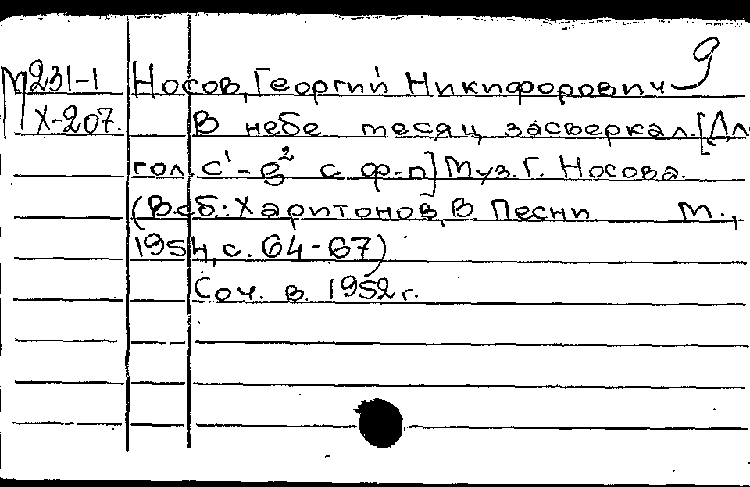 9
М231-1 Носов, Георгий Никифорович
Х-207. В небе месяц засверкал. [Дл
гол. c¹-g² с ф-п] Муз. Г. Носова.
(В сб: Харитонов, В. Песни М.,
1954, с. 64-67)
Соч. в 1952 г.